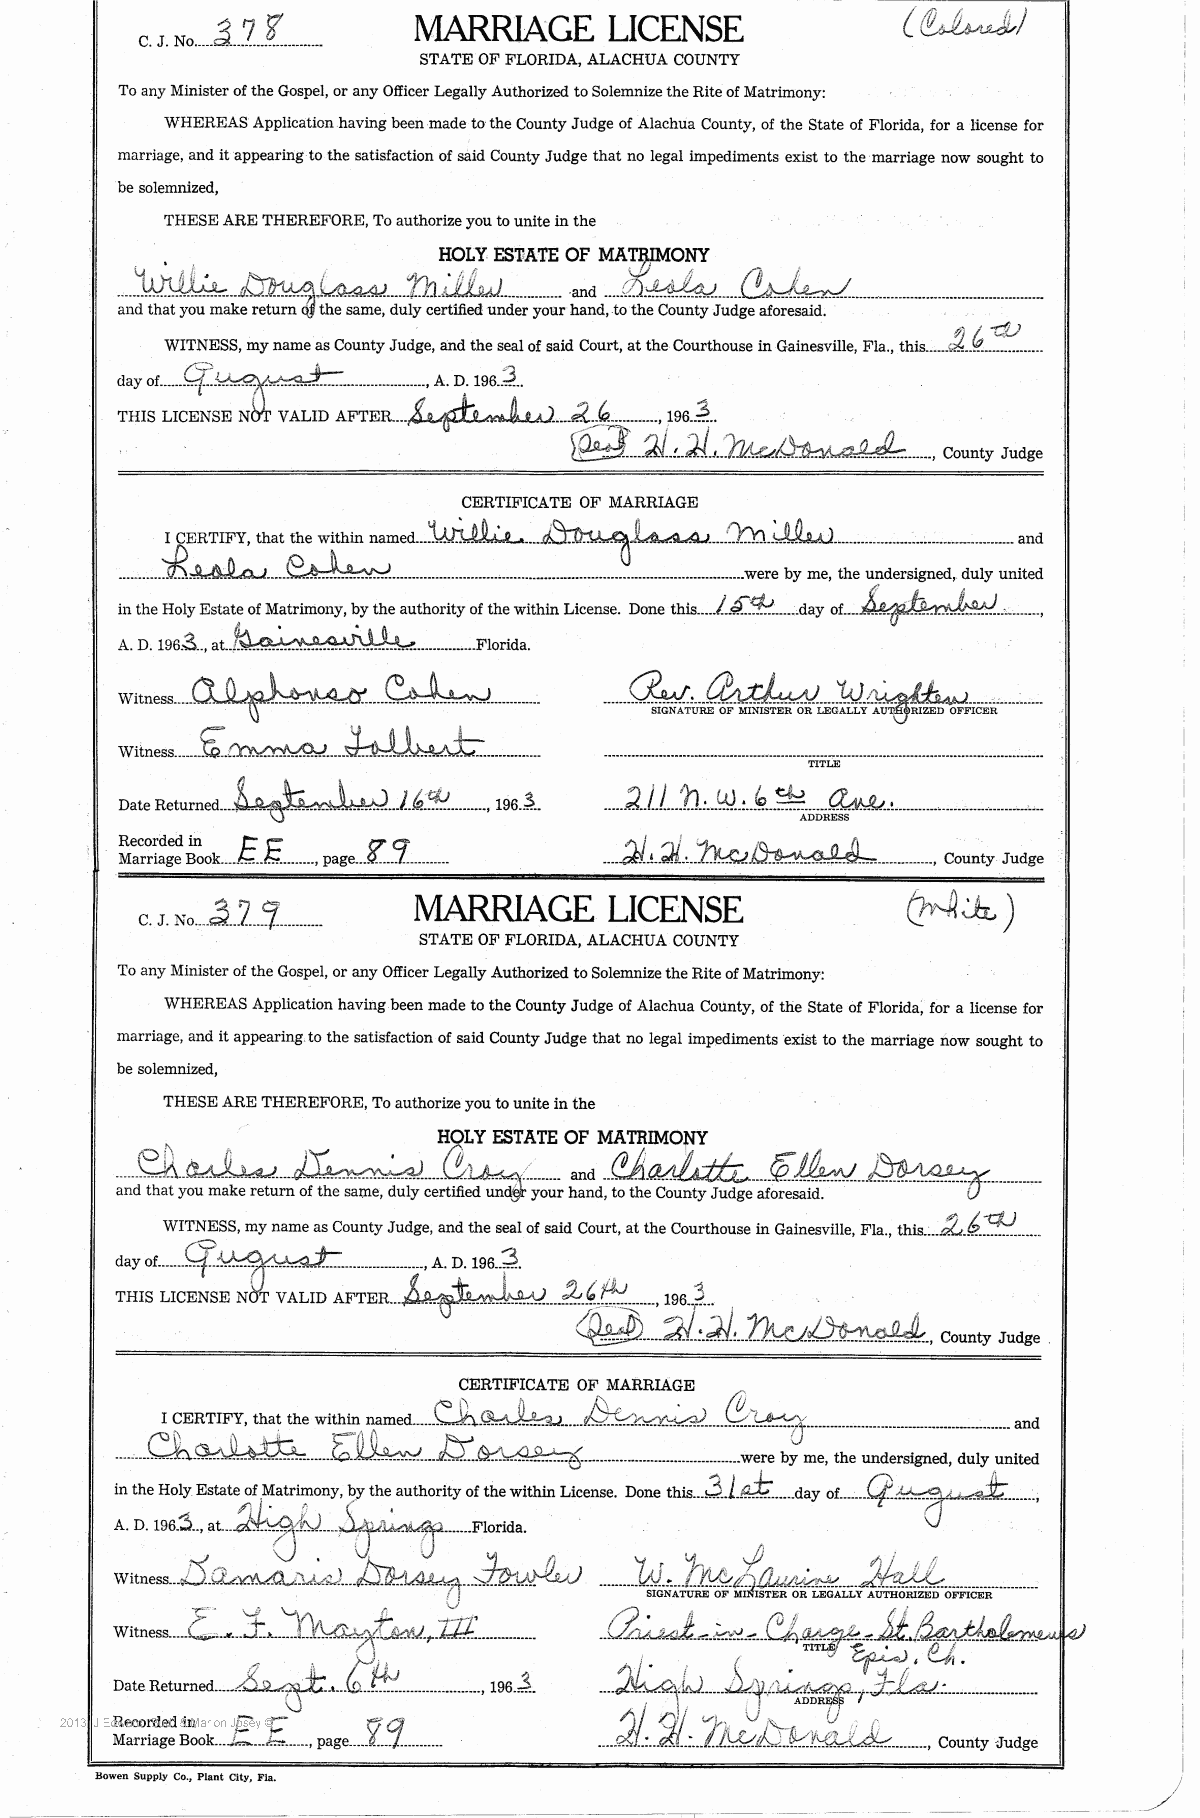 C. J. No. 378 MARRIAGE LICENSE (Colored)
STATE OF FLORIDA, ALACHUA COUNTY
To any Minister of the Gospel, or any Officer Legally Authorized to Solemnize the Rite of Matrimony:
WHEREAS Application having been made to the County Judge of Alachua County, of the State of Florida, for a license for
marriage, and it appearing to the satisfaction of said County Judge that no legal impediments exist to the marriage now sought to
be solemnized,
THESE ARE THEREFORE, To authorize you to unite in the
HOLY ESTATE OF MATRIMONY
Willie Douglass Miller and Leola Cohen
and that you make return of the same, duly certified under your hand, to the County Judge aforesaid.
WITNESS, my name as County Judge, and the seal of said Court, at the Courthouse in Gainesville, Fla., this 26th
day of August, A. D. 1963.
THIS LICENSE NOT VALID AFTER September 26, 1963.
(Seal) H. H. McDonald, County Judge
CERTIFICATE OF MARRIAGE
I CERTIFY, that the within named Willie Douglass Miller and
Leola Cohen were by me, the undersigned, duly united
in the Holy Estate of Matrimony, by the authority of the within License. Done this 15th day of September,
A. D. 1963, at Gainesville Florida.
Witness Alphonso Cohen Rev. Arthur Wrighten
SIGNATURE OF MINISTER OR LEGALLY AUTHORIZED OFFICER
Witness Emma Tolbert
TITLE
Date Returned September 16th, 1963. 211 N. W. 6th Ave.
ADDRESS
Recorded in
Marriage Book EE, page 89 H. H. McDonald, County Judge
C. J. No. 379 MARRIAGE LICENSE (White)
STATE OF FLORIDA, ALACHUA COUNTY
To any Minister of the Gospel, or any Officer Legally Authorized to Solemnize the Rite of Matrimony:
WHEREAS Application having been made to the County Judge of Alachua County, of the State of Florida, for a license for
marriage, and it appearing to the satisfaction of said County Judge that no legal impediments exist to the marriage now sought to
be solemnized,
THESE ARE THEREFORE, To authorize you to unite in the
HOLY ESTATE OF MATRIMONY
Charles Dennis Croy and Charlotte Ellen Dorsey
and that you make return of the same, duly certified under your hand, to the County Judge aforesaid.
WITNESS, my name as County Judge, and the seal of said Court, at the Courthouse in Gainesville, Fla., this 26th
day of August, A. D. 1963.
THIS LICENSE NOT VALID AFTER September 26th, 1963.
(Seal) H. H. McDonald, County Judge
CERTIFICATE OF MARRIAGE
I CERTIFY, that the within named Charles Dennis Croy and
Charlotte Ellen Dorsey were by me, the undersigned, duly united
in the Holy Estate of Matrimony, by the authority of the within License. Done this 31st day of August,
A. D. 1963, at High Springs Florida.
Witness Damaris Dorsey Fowler W. McLaurine Hall
SIGNATURE OF MINISTER OR LEGALLY AUTHORIZED OFFICER
Witness E. F. Mayton, III Priest-in-Charge-St. Bartholomews
TITLE Epis. Ch.
Date Returned Sept. 6th, 1963. High Springs, Fla.
ADDRESS
2013
Recorded in
Marriage Book EE, page 89 H. H. McDonald, County Judge
Bowen Supply Co., Plant City, Fla.